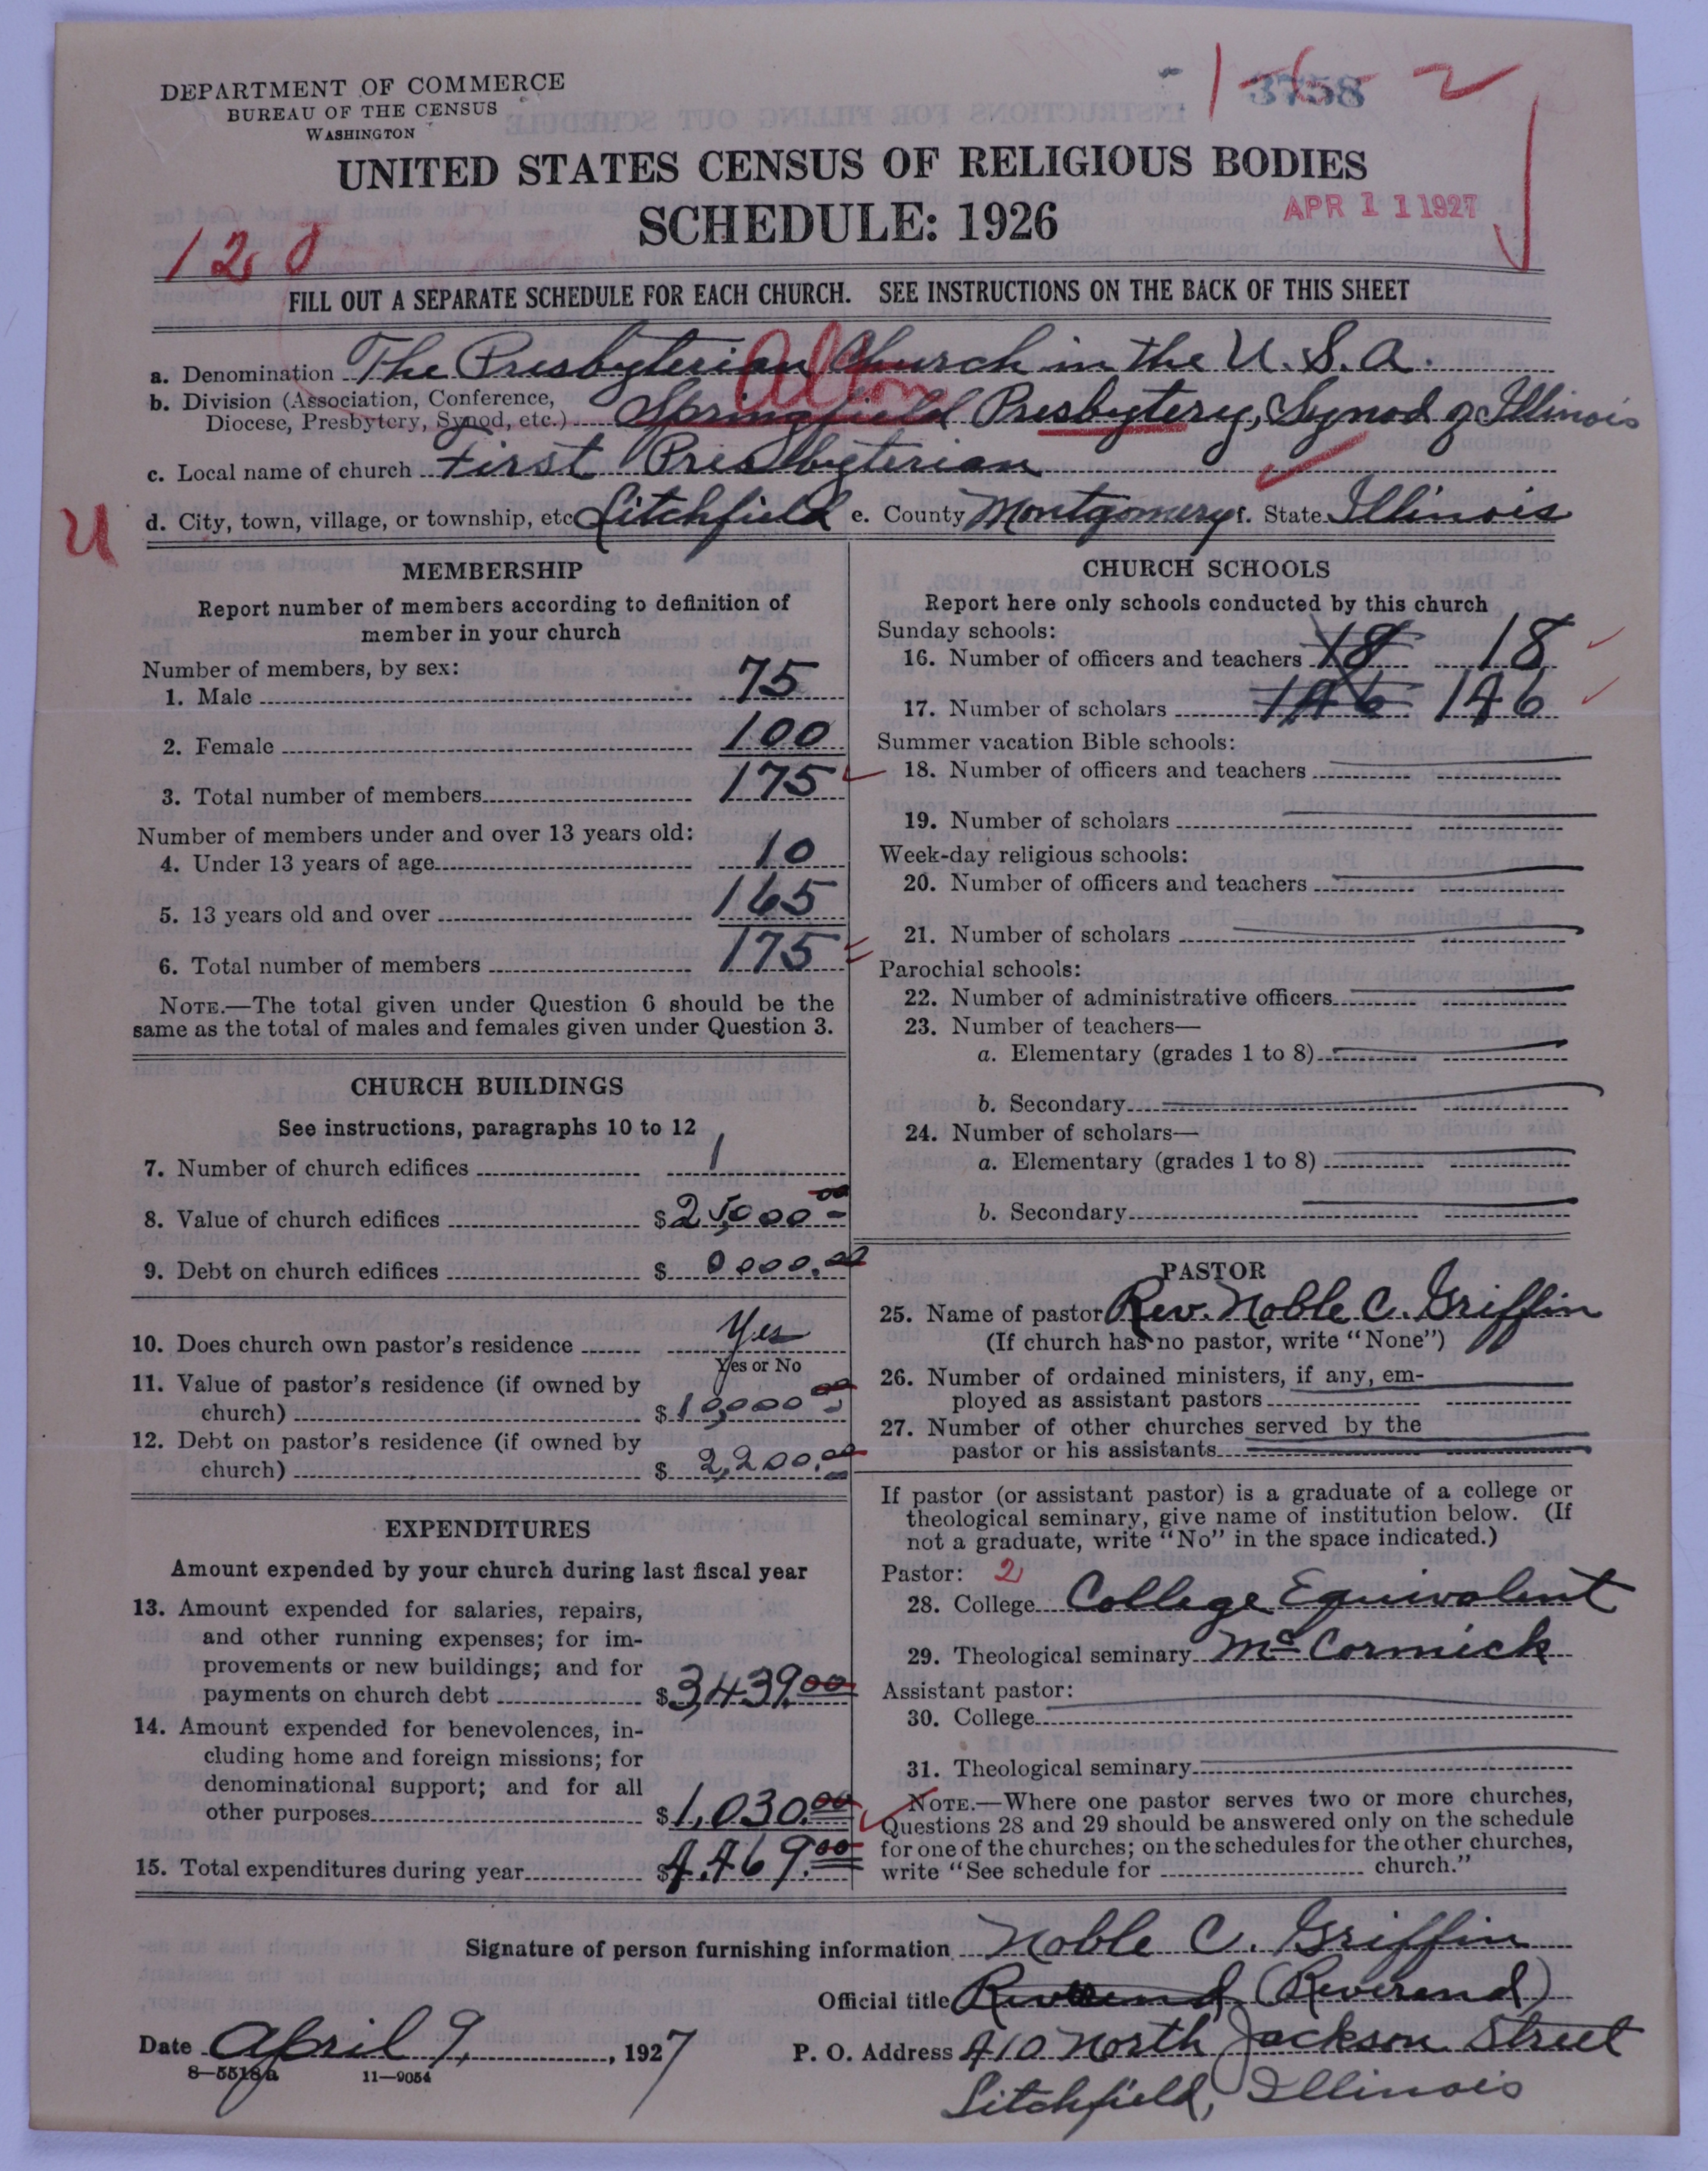 DEPARTMENT OF COMMERCE
BUREAU OF THE CENSUS
WASHINGTON
1-6-2
3758
UNITED STATES CENSUS OF RELIGIOUS BODIES
SCHEDULE: 1926
APR 11 1927
120
FILL OUT A SEPARATE SCHEDULE FOR EACH CHURCH. SEE INSTRUCTIONS ON THE BACK OF THIS SHEET
a. Denomination The Presbyterian Church in the U. S. A.
Alton
b. Division (Association, Conference,
Diocese, Presbytery, Synod, etc.) Springfield Presbytery, Synod of Illinois
c. Local name of church First Presbyterian
U
d. City, town, village, or township, etc Litchfield e. County Montgomery f. State Illinois
MEMBERSHIP
Report number of members according to definition of
member in your church
Number of members, by sex:
1. Male 75
2. Female 100
3. Total number of members 175
Number of members under and over 13 years old:
4. Under 13 years of age 10
5. 13 years old and over 165
6. Total number of members 175
NOTE.—The total given under Question 6 should be the
same as the total of males and females given under Question 3.
CHURCH BUILDINGS
See instructions, paragraphs 10 to 12
7. Number of church edifices 1
8. Value of church edifices $25,000 00
9. Debt on church edifices $0000.00
10. Does church own pastor's residence Yes
Yes or No
11. Value of pastor's residence (if owned by
church) $10,000 00
12. Debt on pastor's residence (if owned by
church) $2,200.00
EXPENDITURES
Amount expended by your church during last fiscal year
13. Amount expended for salaries, repairs,
and other running expenses; for im-
provements or new buildings; and for
payments on church debt $3,439.00
14. Amount expended for benevolences, in-
cluding home and foreign missions; for
denominational support; and for all
other purposes $1,030.00
15. Total expenditures during year $4,469.00
CHURCH SCHOOLS
Report here only schools conducted by this church
Sunday schools:
16. Number of officers and teachers 18 18
17. Number of scholars 146 146
Summer vacation Bible schools:
18. Number of officers and teachers
19. Number of scholars
Week-day religious schools:
20. Number of officers and teachers
21. Number of scholars
Parochial schools:
22. Number of administrative officers
23. Number of teachers—
a. Elementary (grades 1 to 8)
b. Secondary
24. Number of scholars—
a. Elementary (grades 1 to 8)
b. Secondary
PASTOR
25. Name of pastor Rev. Noble C. Griffin
(If church has no pastor, write "None")
26. Number of ordained ministers, if any, em-
ployed as assistant pastors
27. Number of other churches served by the
pastor or his assistants
If pastor (or assistant pastor) is a graduate of a college or
theological seminary, give name of institution below. (If
not a graduate, write "No" in the space indicated.)
Pastor: 2
28. College College Equivalent
29. Theological seminary McCormick
Assistant pastor:
30. College
31. Theological seminary
NOTE.—Where one pastor serves two or more churches,
Questions 28 and 29 should be answered only on the schedule
for one of the churches; on the schedules for the other churches,
write "See schedule for church."
Signature of person furnishing information Noble C. Griffin
Official title Reverend (Reverend)
Date April 9, 1927
P. O. Address 410 North Jackson Street
Litchfield, Illinois
8—5518a 11—9054